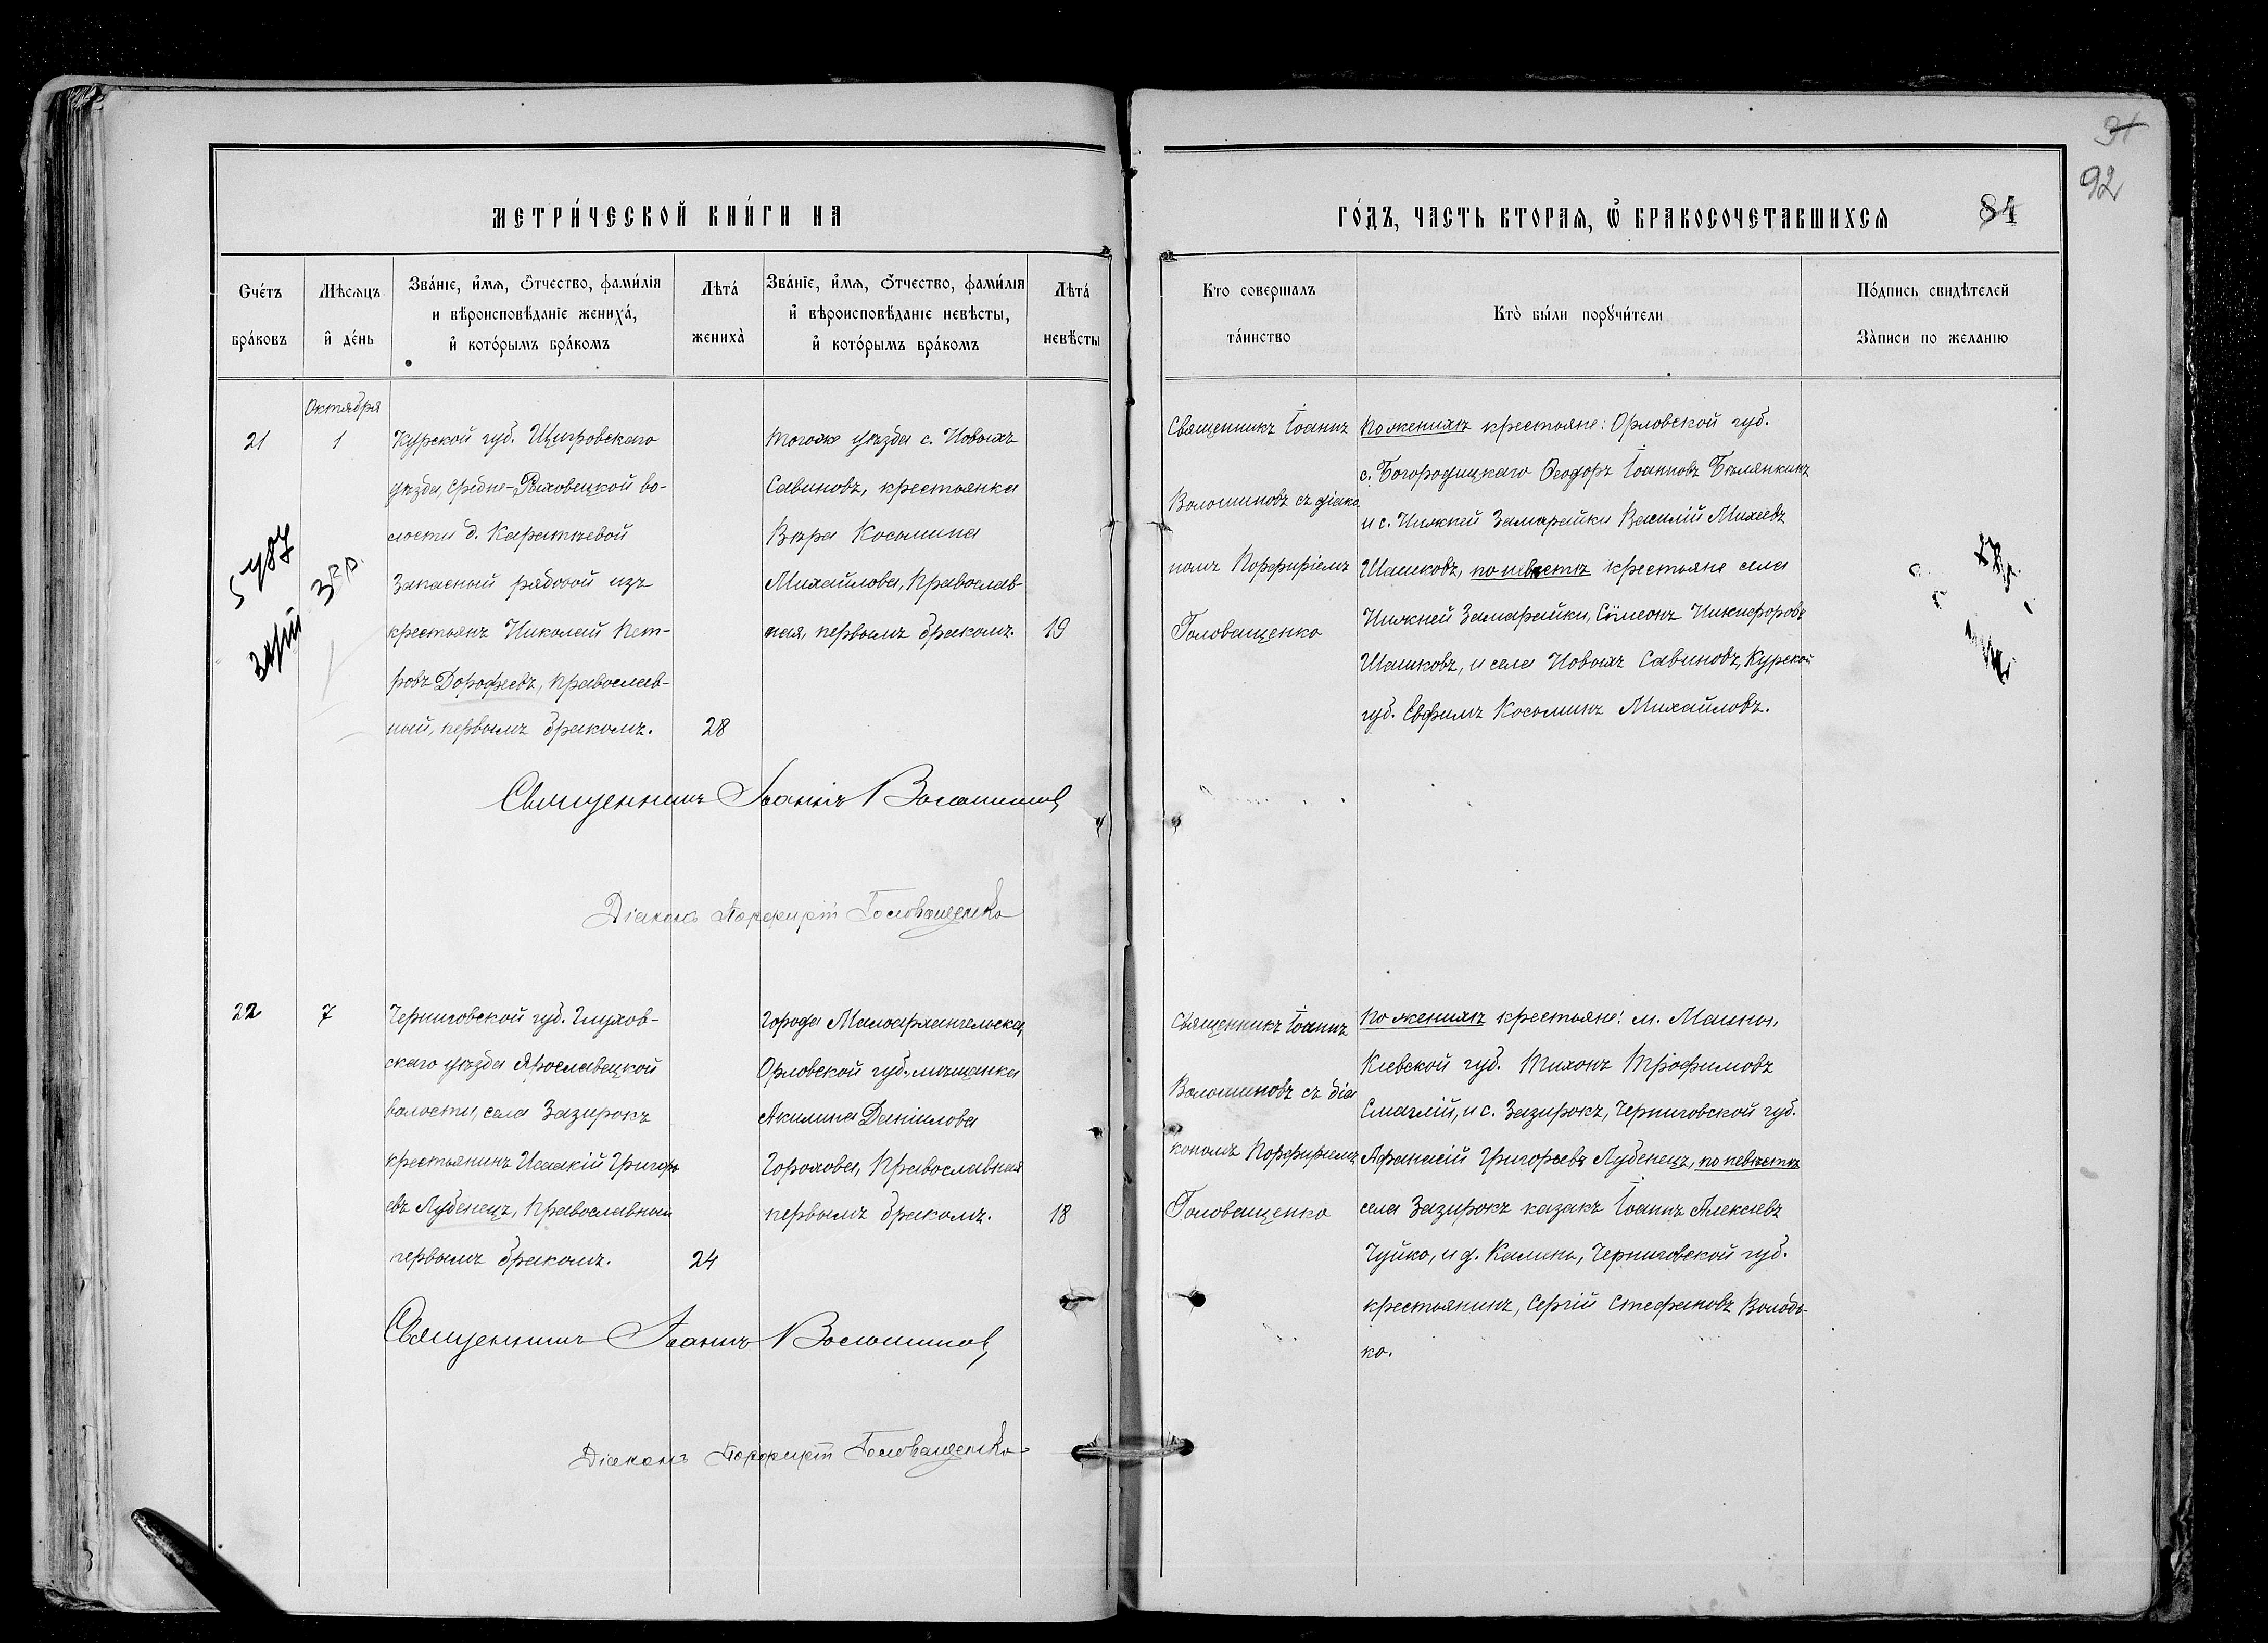 92
МЕТРИ́ЧЕСКОЙ КНИ́ГИ НА
ГО́ДЪ, ЧАСТЬ ВТОРАѦ, Ѡ҆ БРАКОСОЧЕТАВШИХСѦ
84
Счéтъ
брáковъ
Мѣсѧцъ
и҆ дéнь
Звáнїе, и҆́мѧ, ѻ҆́тчество, фами́лїѧ
и вѣроисповѣ́данїе женихá,
и҆ кото́рымъ брáкомъ
Лѣтá
женихà
Звáнїе, и҆́мѧ, ѻ҆́тчество, фами́лїѧ
и҆ вѣроисповѣ́данїе невѣ́сты,
и҆ кото́рымъ брáкомъ
Лѣтá
невѣ́сты
Кто совершалъ
тáинство
Ктò бы́ли порꙋчи́тели
Пóдпись свидѣ́телей
Зàписи по желáнїю
Октября
21
1
Курской губ. Щигровскаго
уѣзда, Средне-Расховецкой во-
лости д. Каратѣевой
Запасный рядовой изъ
крестьянъ Николай Пет-
ровъ Дорофеевъ, православ-
ный, первымъ бракомъ.
28
тогоже уѣзда с. Новыхъ
Савиновъ, крестьянка
Вѣра Косьмина
Михайлова, Православ-
ная, первымъ бракомъ.
19
Священникъ Іоаннъ
Волошиновъ съ діако
номъ Порфиріемъ
Головащенко
По женихѣ крестьяне: Орловской губ.
с. Богородицкаго Ѳеодоръ Іоанновъ Бѣлянкинъ
и с. Нижней Замарайки Василій Михеевъ
Шашковъ, по невѣстѣ крестьяне села
Нижней Замарайки, Сѵмеонъ Никифоровъ
Шашковъ, и села Новыхъ Савиновъ, Курской
губ. Евфимъ Косьминъ Михайловъ.
Священникъ Іоаннъ Волошиновъ
Діаконъ Порфирій Головащенко
22
7
Черниговской губ. Глухов-
скаго уѣзда Ярославецкой
волости, села Зазирокъ
крестьянинъ Исаакій Григорь
евъ Лубенецъ, Православный
первымъ бракомъ.
24
Города Малоархангельска,
Орловской губ. мѣщанка
Акилина Даніилова
Горохова, Православная
первымъ бракомъ.
18
Священникъ Іоаннъ
Волошиновъ съ діа
кономъ Порфиріемъ
Головащенко
По женихѣ крестьяне: м. Машны,
Кіевской губ. Тихонъ Трофимовъ
Смаглій, и с. Зазирокъ, Черниговской губ.
Афанасій Григорьевъ Лубенецъ, по невѣстѣ
села Зазирокъ казакъ Іоаннъ Алексѣевъ
Чуйко, и д. Калики, Черниговской губ.
крестьянинъ, Сергій Стефановъ Володь-
ко.
Священникъ Іоаннъ Волошиновъ
Діаконъ Порфирій Головащенко